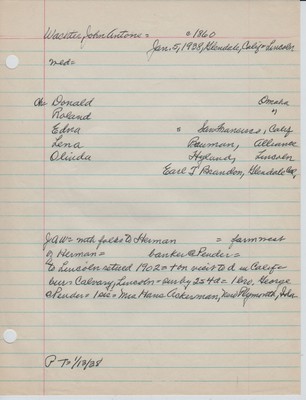 Wachter, John Antone = °1860
Jan. 5, 1938, Glendale, Calif = Lincoln
med=
Ch: Donald Omaha
Roland "
Edna = San Francisco, Calif
Lena Bauman, Alliance
Olinda Hyland, Lincoln
Earl T Brandon, Glendale Cal,
JAW = mth folks to Herman = farm west
of Herman = banker @ Pender =
to Lincoln retired 1902 = + on visit to d in Calif =
bur Calvary, Lincoln = surv by 2s 4d = 1 bro, George
@ Pender = 1 sis = Mrs Hans Ackerman, New Plymouth, Idaho
P T = 1/13/38